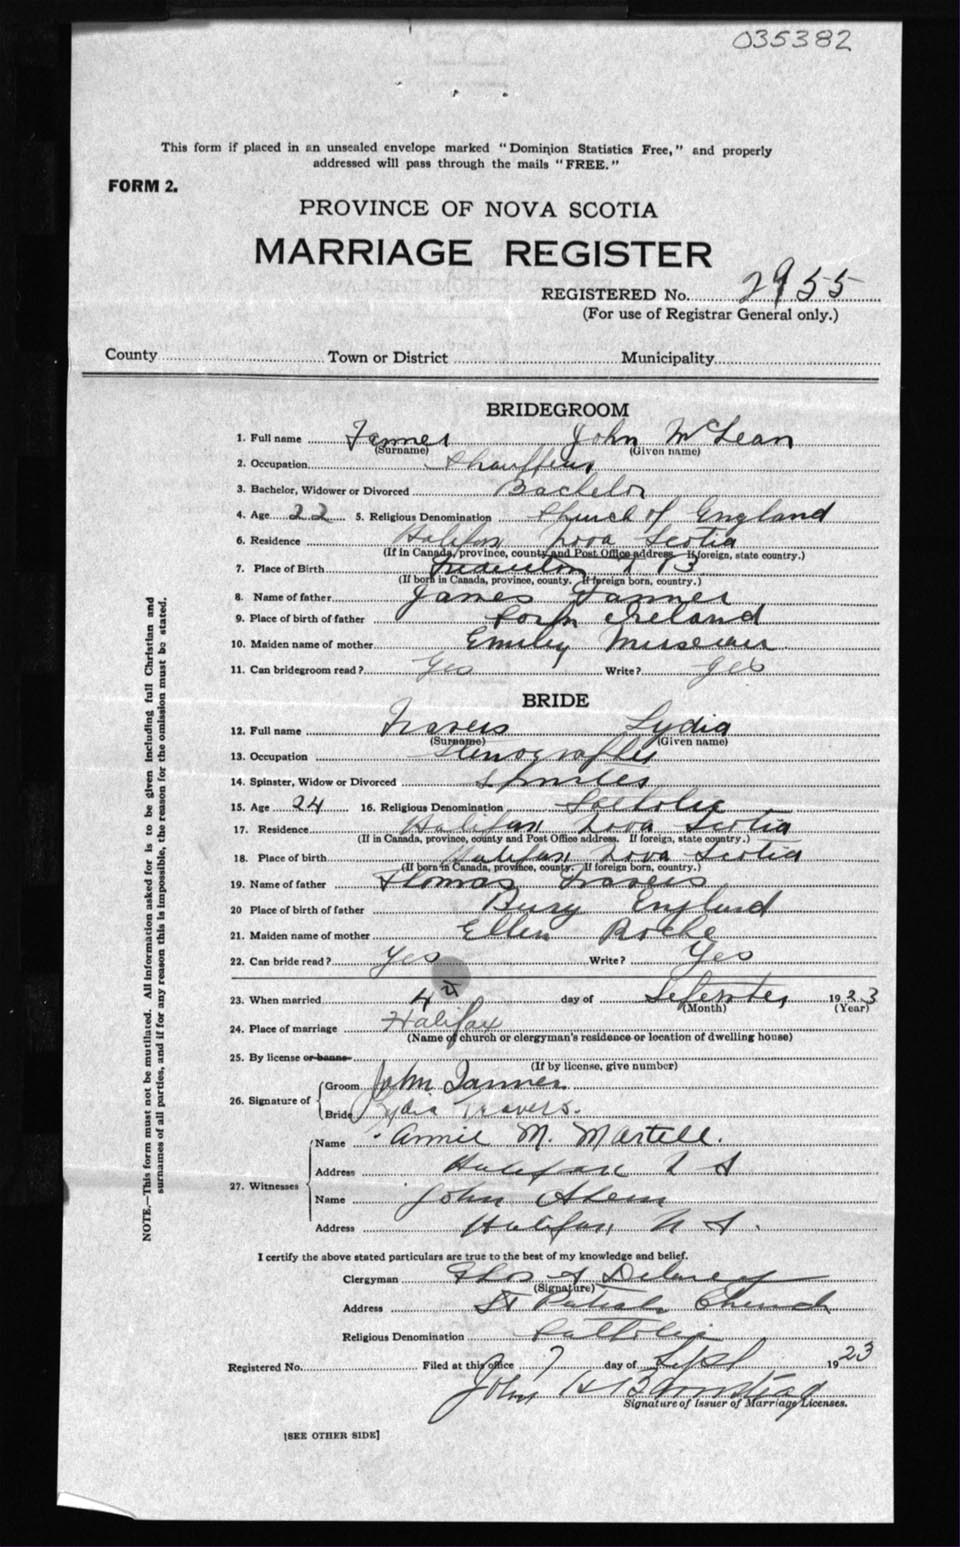 035382
This form if placed in an unsealed envelope marked "Dominion Statistics Free," and properly
addressed will pass through the mails "FREE."
FORM 2.
PROVINCE OF NOVA SCOTIA
MARRIAGE REGISTER
REGISTERED No. 2955
(For use of Registrar General only.)
County Town or District Municipality
BRIDEGROOM
1. Full name Tanner John McLean
(Surname) (Given name)
2. Occupation Chauffeur
3. Bachelor, Widower or Divorced Bachelor
4. Age 22 5. Religious Denomination Church of England
6. Residence Halifax Nova Scotia
(If in Canada, province, county and Post Office address. If foreign, state country.)
7. Place of Birth Fredericton N B
(If born in Canada, province, county. If foreign born, country.)
8. Name of father James Tanner
9. Place of birth of father Ireland
10. Maiden name of mother Emily
11. Can bridegroom read? Yes Write? Yes
BRIDE
12. Full name Travers Lydia
(Surname) (Given name)
13. Occupation Stenographer
14. Spinster, Widow or Divorced Spinster
15. Age 24 16. Religious Denomination Catholic
17. Residence Halifax Nova Scotia
(If in Canada, province, county and Post Office address. If foreign, state country.)
18. Place of birth Halifax Nova Scotia
(If born in Canada, province, county. If foreign born, country.)
19. Name of father Thomas Travers
20 Place of birth of father Bury England
21. Maiden name of mother Ellen Roche
22. Can bride read? Yes Write? Yes
23. When married 4 day of September 1923
(Month) (Year)
24. Place of marriage Halifax
(Name of church or clergyman's residence or location of dwelling house)
25. By license or banns
(If by license, give number)
26. Signature of
Groom John Tanner
Bride Lydia Travers.
27. Witnesses
Name Annie M. Martell.
Address Halifax N S
Name John
Address Halifax N S.
I certify the above stated particulars are true to the best of my knowledge and belief.
Clergyman
(Signature)
Address St Patricks Church
Religious Denomination Catholic
Registered No. Filed at this office 7 day of Sept 1923
John H
Signature of Issuer of Marriage Licenses.
[SEE OTHER SIDE]
NOTE.—This form must not be mutilated. All information asked for is to be given including full Christian and
surnames of all parties, and if for any reason this is impossible, the reason for the omission must be stated.